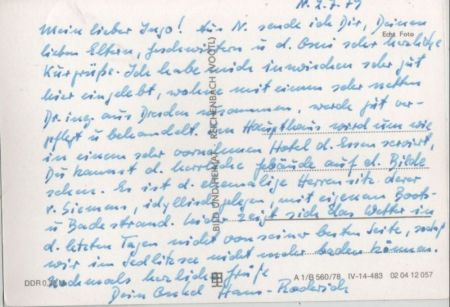 N. 2.7.79
Mein lieber Ingo! Aus N. sende ich Dir, Deinen
lieben Eltern, Geschwistern u. d. Omi sehr herzliche
Echt Foto
Kurgrüße. Ich habe mich inzwischen sehr gut
hier eingelebt, wohne mit einem sehr netten
Dr. ing. aus Dresden zusammen, werde gut ver-
pflegt u. behandelt. Im Haupthaus wird uns wie
in einem sehr vornehmen Hotel d. Essen serviert,
Du kannst d. herrliche Gebäude auf d. Bilde
sehen. Es ist d. ehemalige Herrensitz derer
v. Siemens, idyllisch gelegen, mit eigenem Boots-
u. Badestrand. Leider zeigt sich das Wetter in
d. letzten Tagen nicht von seiner besten Seite,
wir im nicht mehr baden können.
Nochmals herzliche Grüße
Dein Onkel Hans-Roderich
BILD UND HEIMAT REICHENBACH (VOGTL)
DDR 0,
A 1/B 560/78 IV-14-483 02 04 12 057